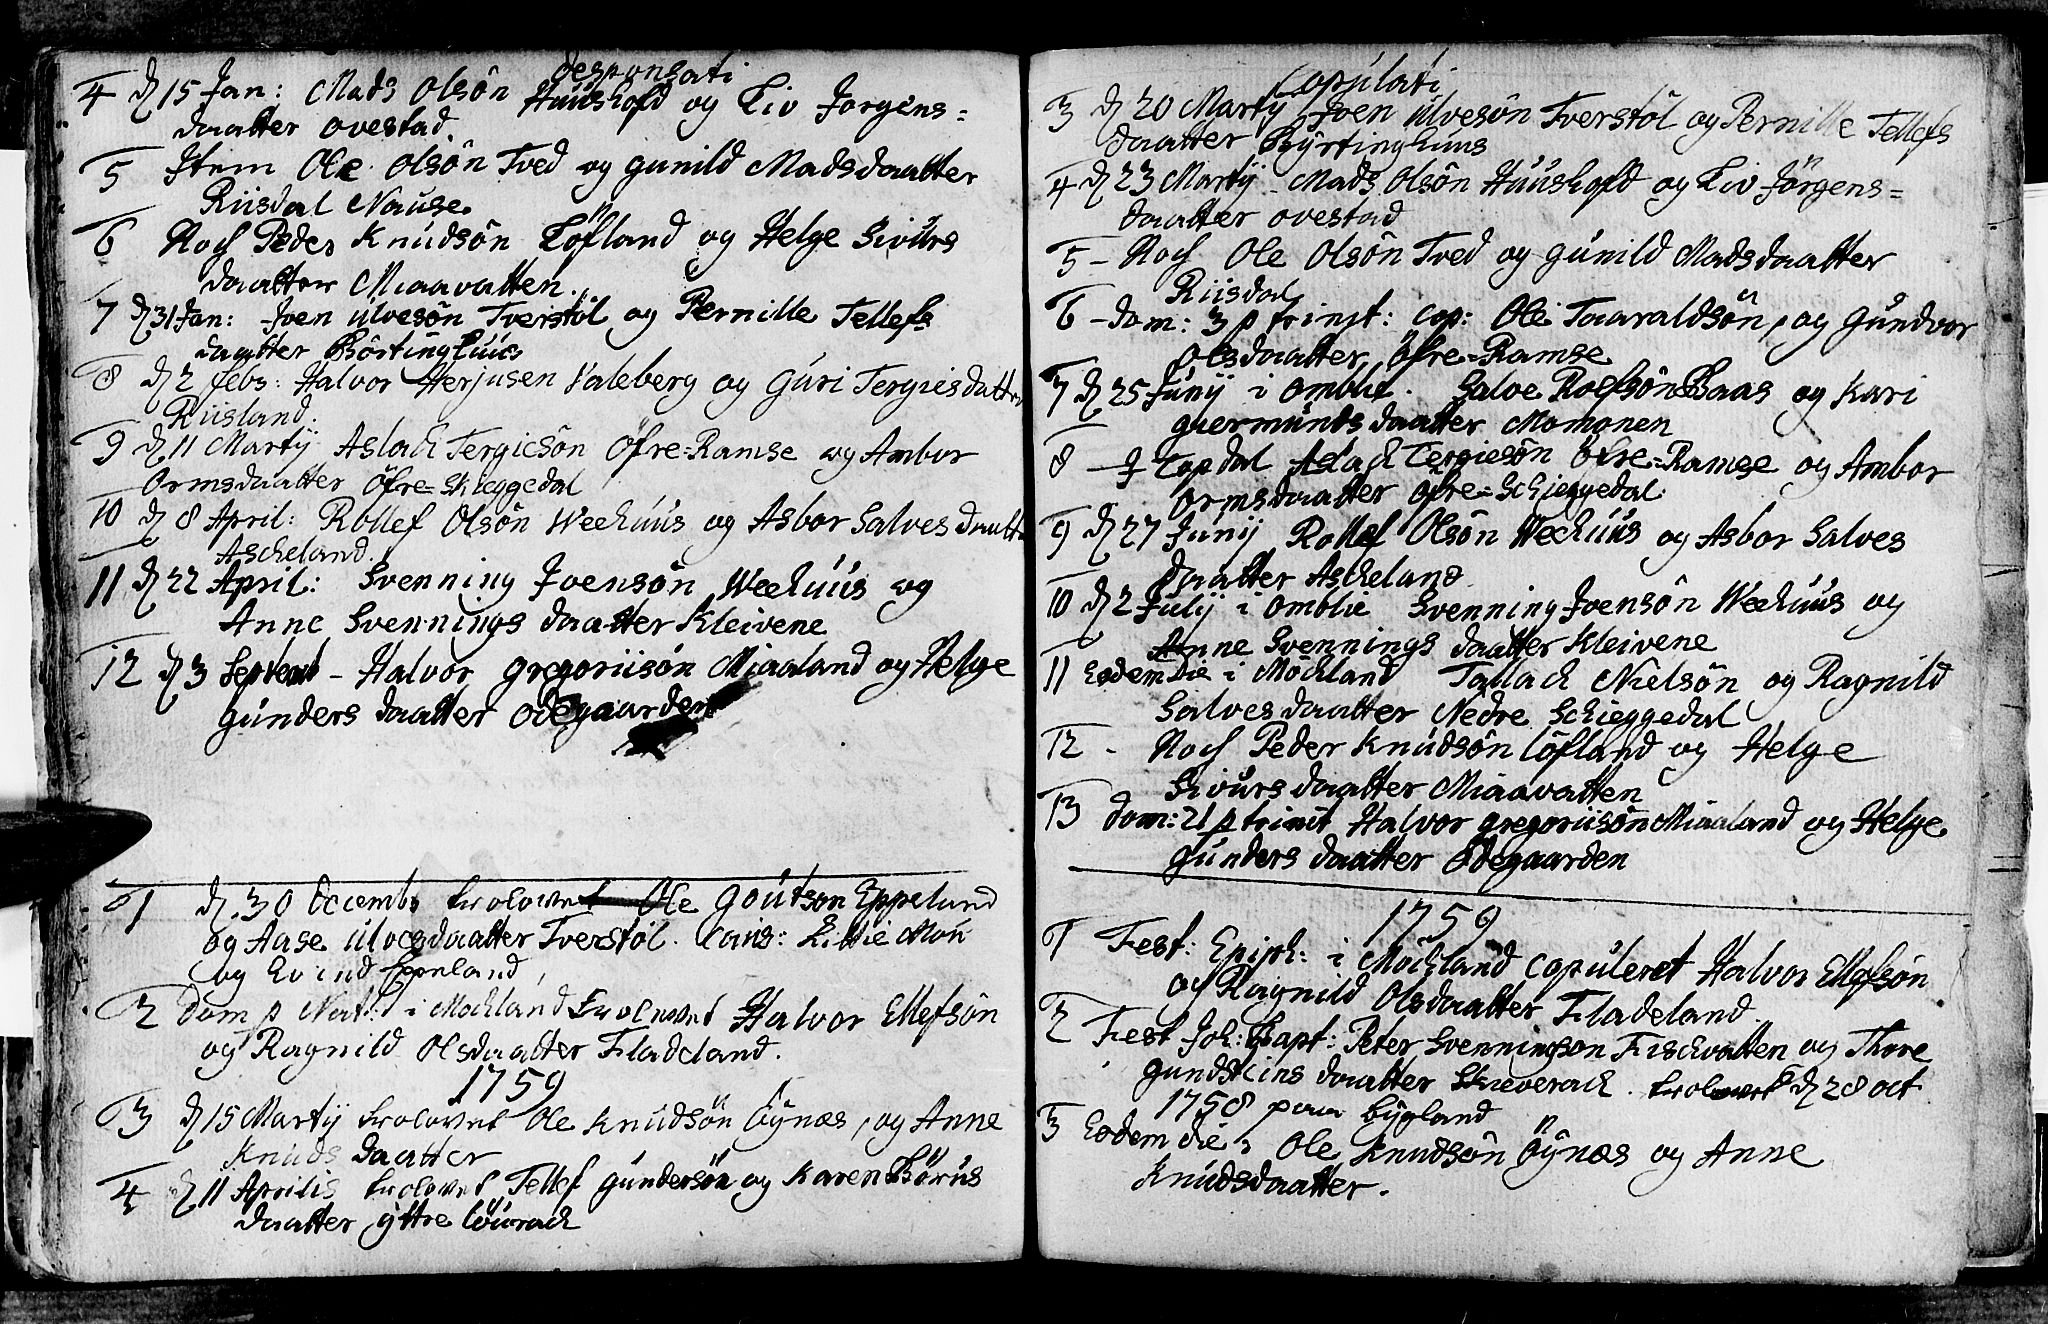 desponsati
4 d 15 Jan: Mads Olsön Huushold og Liv Jorgens=
daatter ovestad.
5 Item Ole Olsön Tved og gunild Madsdaatter
Riisdal Nause
6 Noch Peder Knudsön Löfland og Helge Sivurs
daatter Miaavatten.
7 d 31 Jan: Joen Ulvesön Tverstöl og Pernille Tellefs
daatter
8 d 2 febr: Halvor Herjusen Valeberg og Guri Tergiesdatter
Riisland.
9 d 11 Martij Aslach Tergiesön Öfre=Ramse og Ambor
Ormsdaatter Öfre=Skieggedal
10 d 8 April: Rollef Olsön Weehuus og Asbor Salves daatter
Ascheland.
11 d 22 April: Svenning Joensön Weehuus og
Anne Svennings daatter Kleivene
12 d 3 Septemb - Halvor gregoriisön Miaaland og Helge
gunders daatter Ödegaarden
1 d. 30 Decembr trolovet Ole Goutson Eppeland
og Aase Ulvesdaatter Tverstöl. Cavis:
og Evind Eppeland
2 Dom p Nat: i Mochland trolovet Halvor Ellefsön
og Ragnild Olsdaatter Fladeland.
1759
3 d 15 Martij trolovet Ole Knudsön Öynæs, og Anne
Knuds daatter
4 d 11 Aprilis trolovet Tellef gundersön og Karen Börus
daatter yttre
Copulati
3 d 20 Martij Joen Ulvesön Tverstöl og Pernille Tellefs
daatter Byrtinghuus
4 d 23 Martij Mads Olsön Huushold og Liv Jörgens=
daatter ovestad
5 - Noch Ole Olsön Tved og gunild Madsdaatter
Riisdal
6 - dom: 3 p trinit: cop: Ole Taaraldsön, og Gundvor
Olsdaatter Öfre=Ramse
7 d 25 Junij i omblie. Salve Rolfsön Baas og Kari
giermunds daatter Momonen
8 - i Topdal Aslach Tergiesön Öfre=Ramse og Ambor
Ormsdaatter Öfre=Schieggedal.
9 d 27 Junij Rollef Olsön Weehuus og Asbor Salves
daatter Ascheland
10 d 2 Julij i omblie Svenning Joensön Weehuus og
Anne Svennings daatter Kleivene
11 Eodem Die i Möchland Tallach Nielsön og Ragnild
Salves daatter Nedre Schieggedal
12 - Noch Peder Knudsön Löfland og Helge
Sivurs daatter Miaavatten
13 Dom: 21 p trinit Halvor gregoriisön Miaaland og Helge
gunders daatter Ödegaarden
1759
1 Fest: Epiph: i Möchland copuleret Halvor Ellefsön
og Ragnild Olsdaatter Fladeland.
2 Fest Joh: Bapt: Peter Svenningson Fischvatten og Thore
gundsteins daatter trolovet d 28 oct
1758 paa bygland
3 Eodem die, Ole Knudsön Öynæs og Anne
Knudsdaatter.